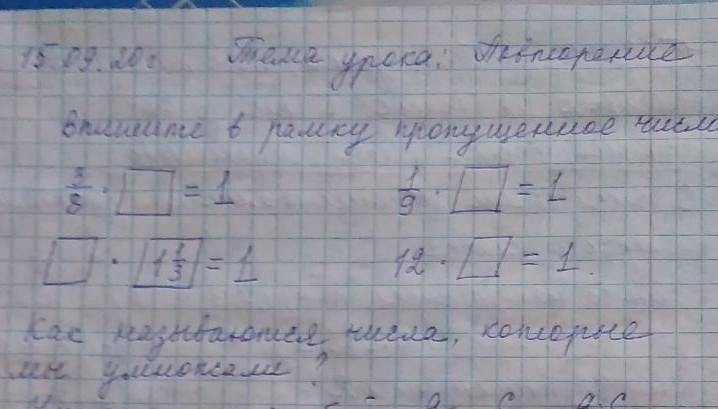 15.09.20г. Тема урока: Повторение
Впишите в рамку пропущенное число
3/8 · □ = 1 1/9 · □ = 1
□ · 1 1/3 = 1 12 · □ = 1.
Как называются числа, которые
мы умножали?